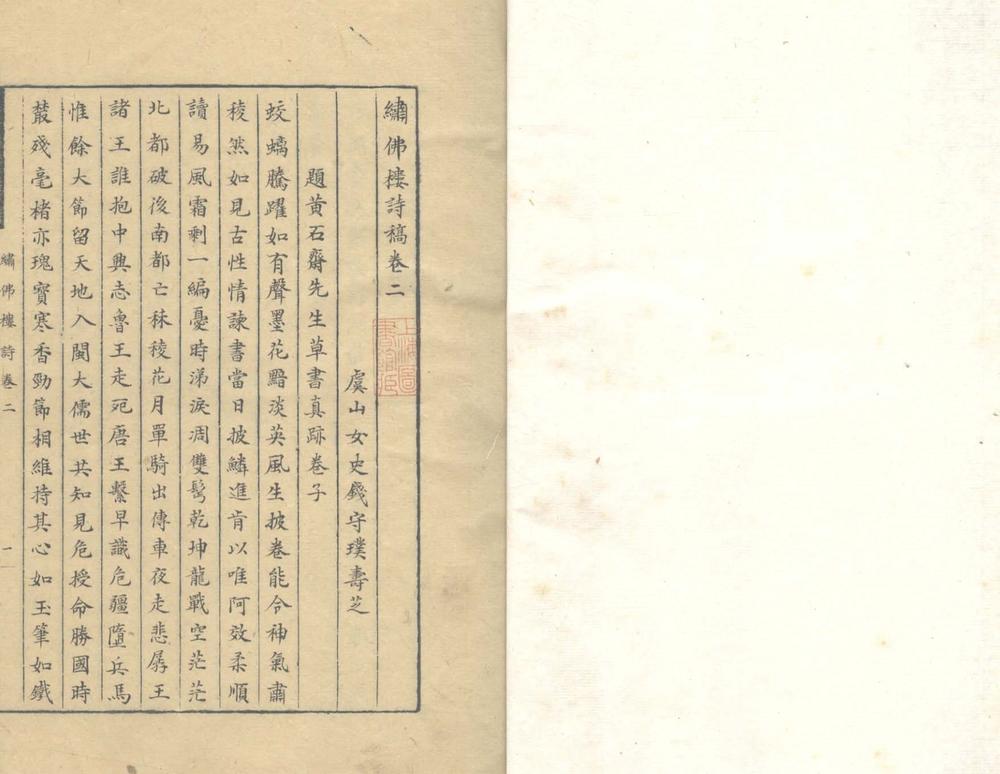 繡佛樓詩稿卷二
上海圖書館藏
虞山女史錢守璞壽芝
題黃石齋先生草書真跡卷子
蛟螭騰躍如有聲墨花黯淡英風生披卷能令神氣肅
稜然如見古性情諫書當日披鱗進肯以唯阿效柔順
讀易風霜剩一編憂時涕淚凋雙鬢乾坤龍戰空茫茫
北都破後南都亡秣稜花月單騎出傳車夜走悲孱王
諸王誰抱中興志魯王走死唐王繫早識危疆墮兵馬
惟餘大節留天地入閩大儒世共知見危授命勝國時
叢殘毫楮亦瑰寶寒香勁節相維持其心如玉筆如鐵
繡佛樓詩卷二
一